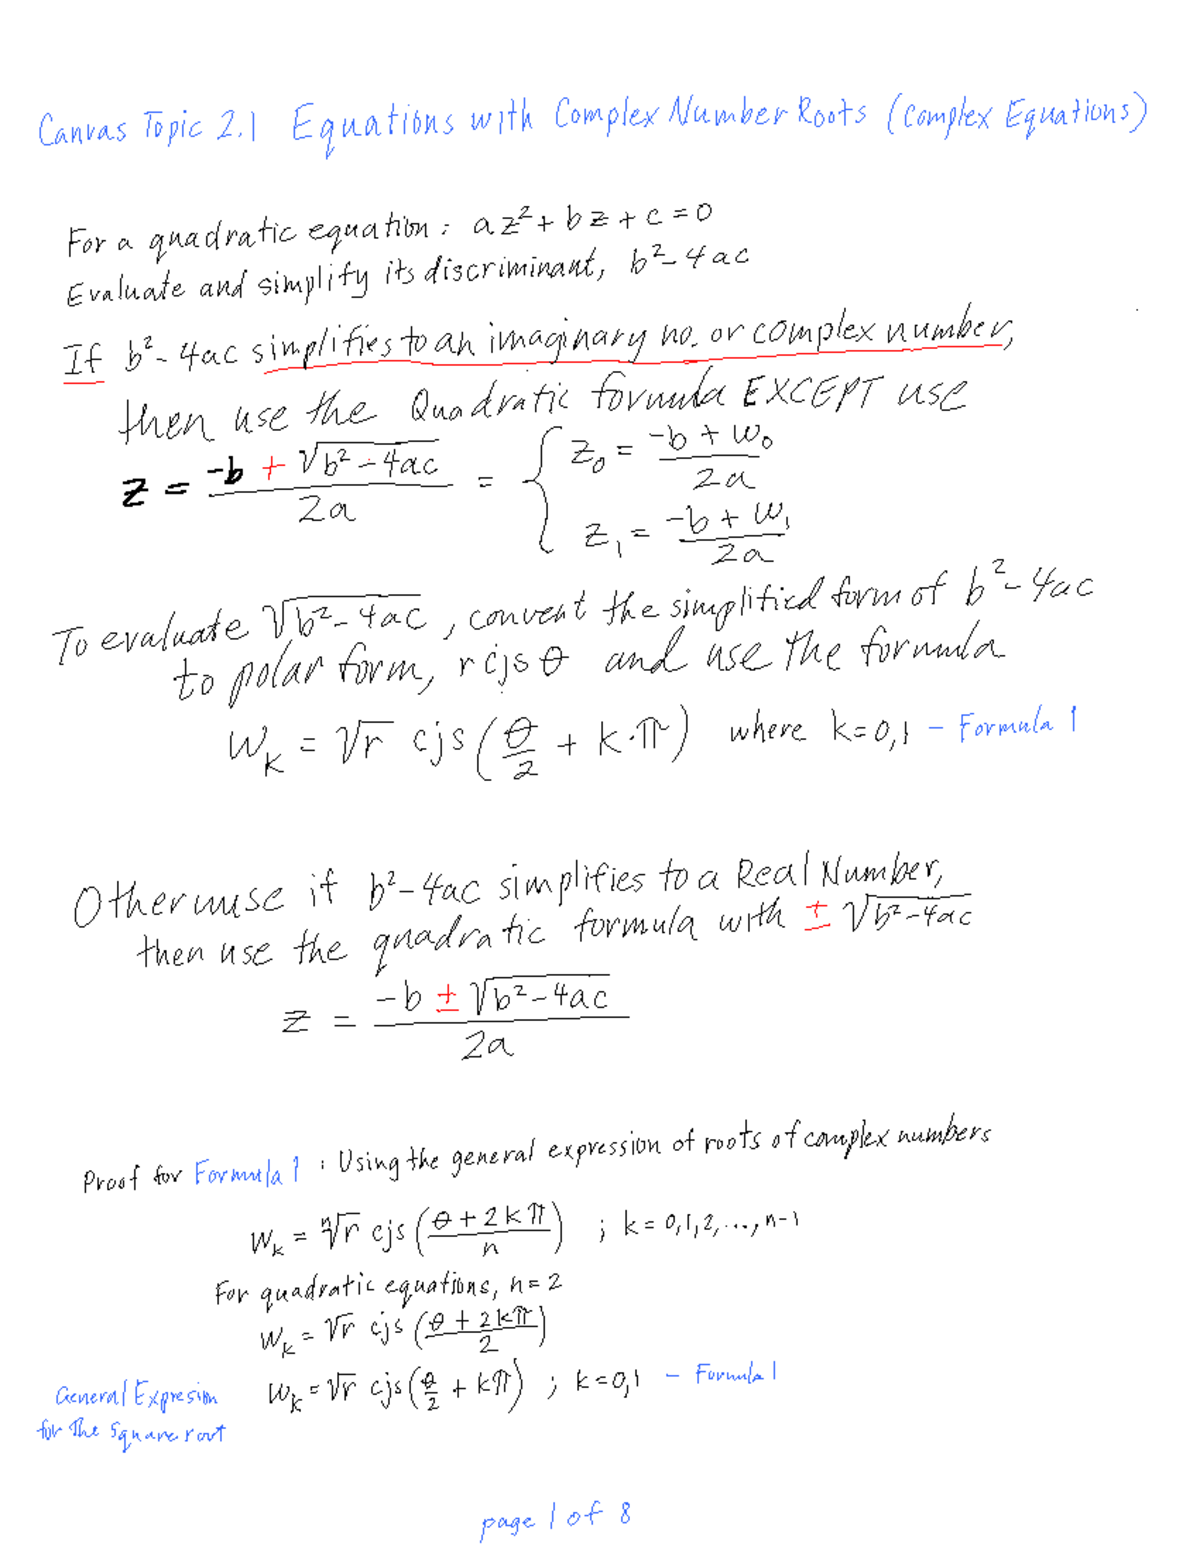 Canvas Topic 2.1 Equations with Complex Number Roots (Complex Equations)
For a quadratic equation: az²+bz+c=0
Evaluate and simplify its discriminant, b²-4ac
If b²-4ac simplifies to an imaginary no. or complex number,
then use the Quadratic formula EXCEPT use
z = (-b + √(b²-4ac))/(2a) = { z₀ = (-b + w₀)/(2a)
z₁ = (-b + w₁)/(2a)
To evaluate √(b²-4ac), convert the simplified form of b²-4ac
to polar form, r cjs θ and use the formula
w_k = √r cjs(θ/2 + k·π) where k=0,1 - Formula 1
Otherwise if b²-4ac simplifies to a Real Number,
then use the quadratic formula with ± √(b²-4ac)
z = (-b ± √(b²-4ac))/(2a)
Proof for Formula 1 : Using the general expression of roots of complex numbers
w_k = ⁿ√r cjs((θ+2kπ)/n) ; k=0,1,2,...,n-1
For quadratic equations, n=2
w_k = √r cjs((θ+2kπ)/2)
General Expresion w_k = √r cjs(θ/2 + kπ) ; k=0,1 - Formula 1
for the square root
page 1 of 8